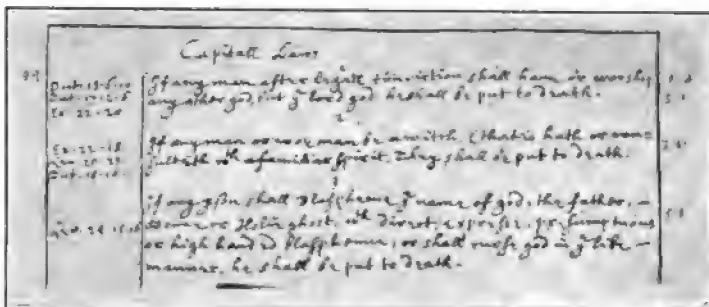 94 Capitall Laws
1
Deut: 13-6-10 If any man after legall conviction shall haue or worship
any other god, but yᵉ lord god he shall be put to death.
Ex: 22-20
2
Ex: 22-18 If any man or woman be a witch, (that is hath or
consulteth wᵗʰ a familiar spirit, They shall be put to death.
3
If any pson shall Blaspheme yᵉ name of god, the father,
Sonne or Holie ghost, wᵗʰ direct, expresse, presumptuous
or high handed blasphemie, or shall curse god in yᵉ like
manner, he shall be put to death.